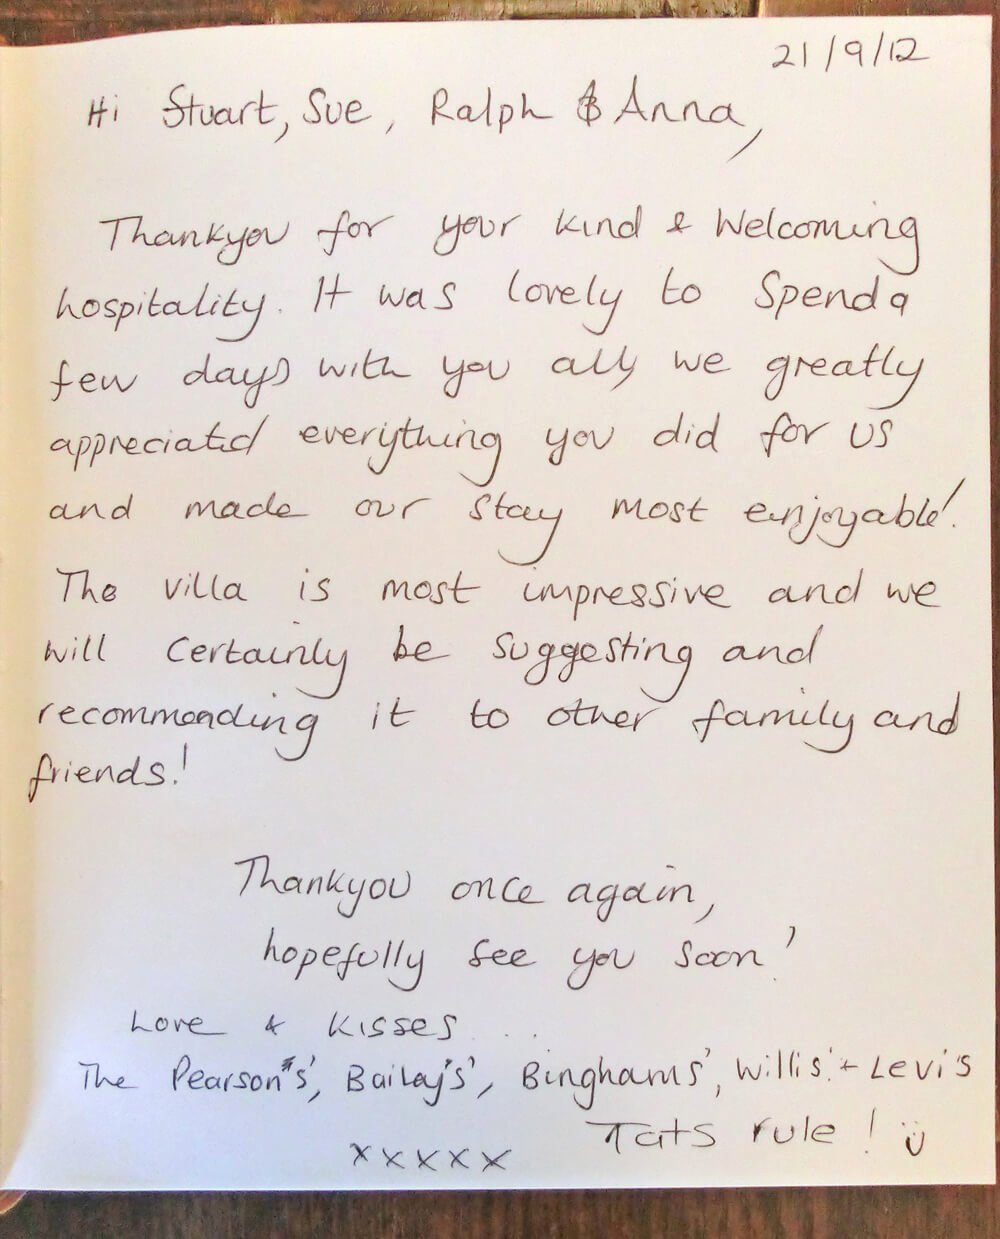 21/9/12
Hi Stuart, Sue, Ralph & Anna,
Thankyou for your kind & Welcoming
hospitality. It was lovely to Spend a
few days with you all, we greatly
appreciated everything you did for us
and made our stay most enjoyable!
The villa is most impressive and we
will certainly be suggesting and
recommending it to other family and
friends!
Thankyou once again,
hopefully see you soon!
Love & Kisses ...
The Pearson's', Bailey's', Binghams', Willis' + Levi's
Tats rule! ü
xxxxx